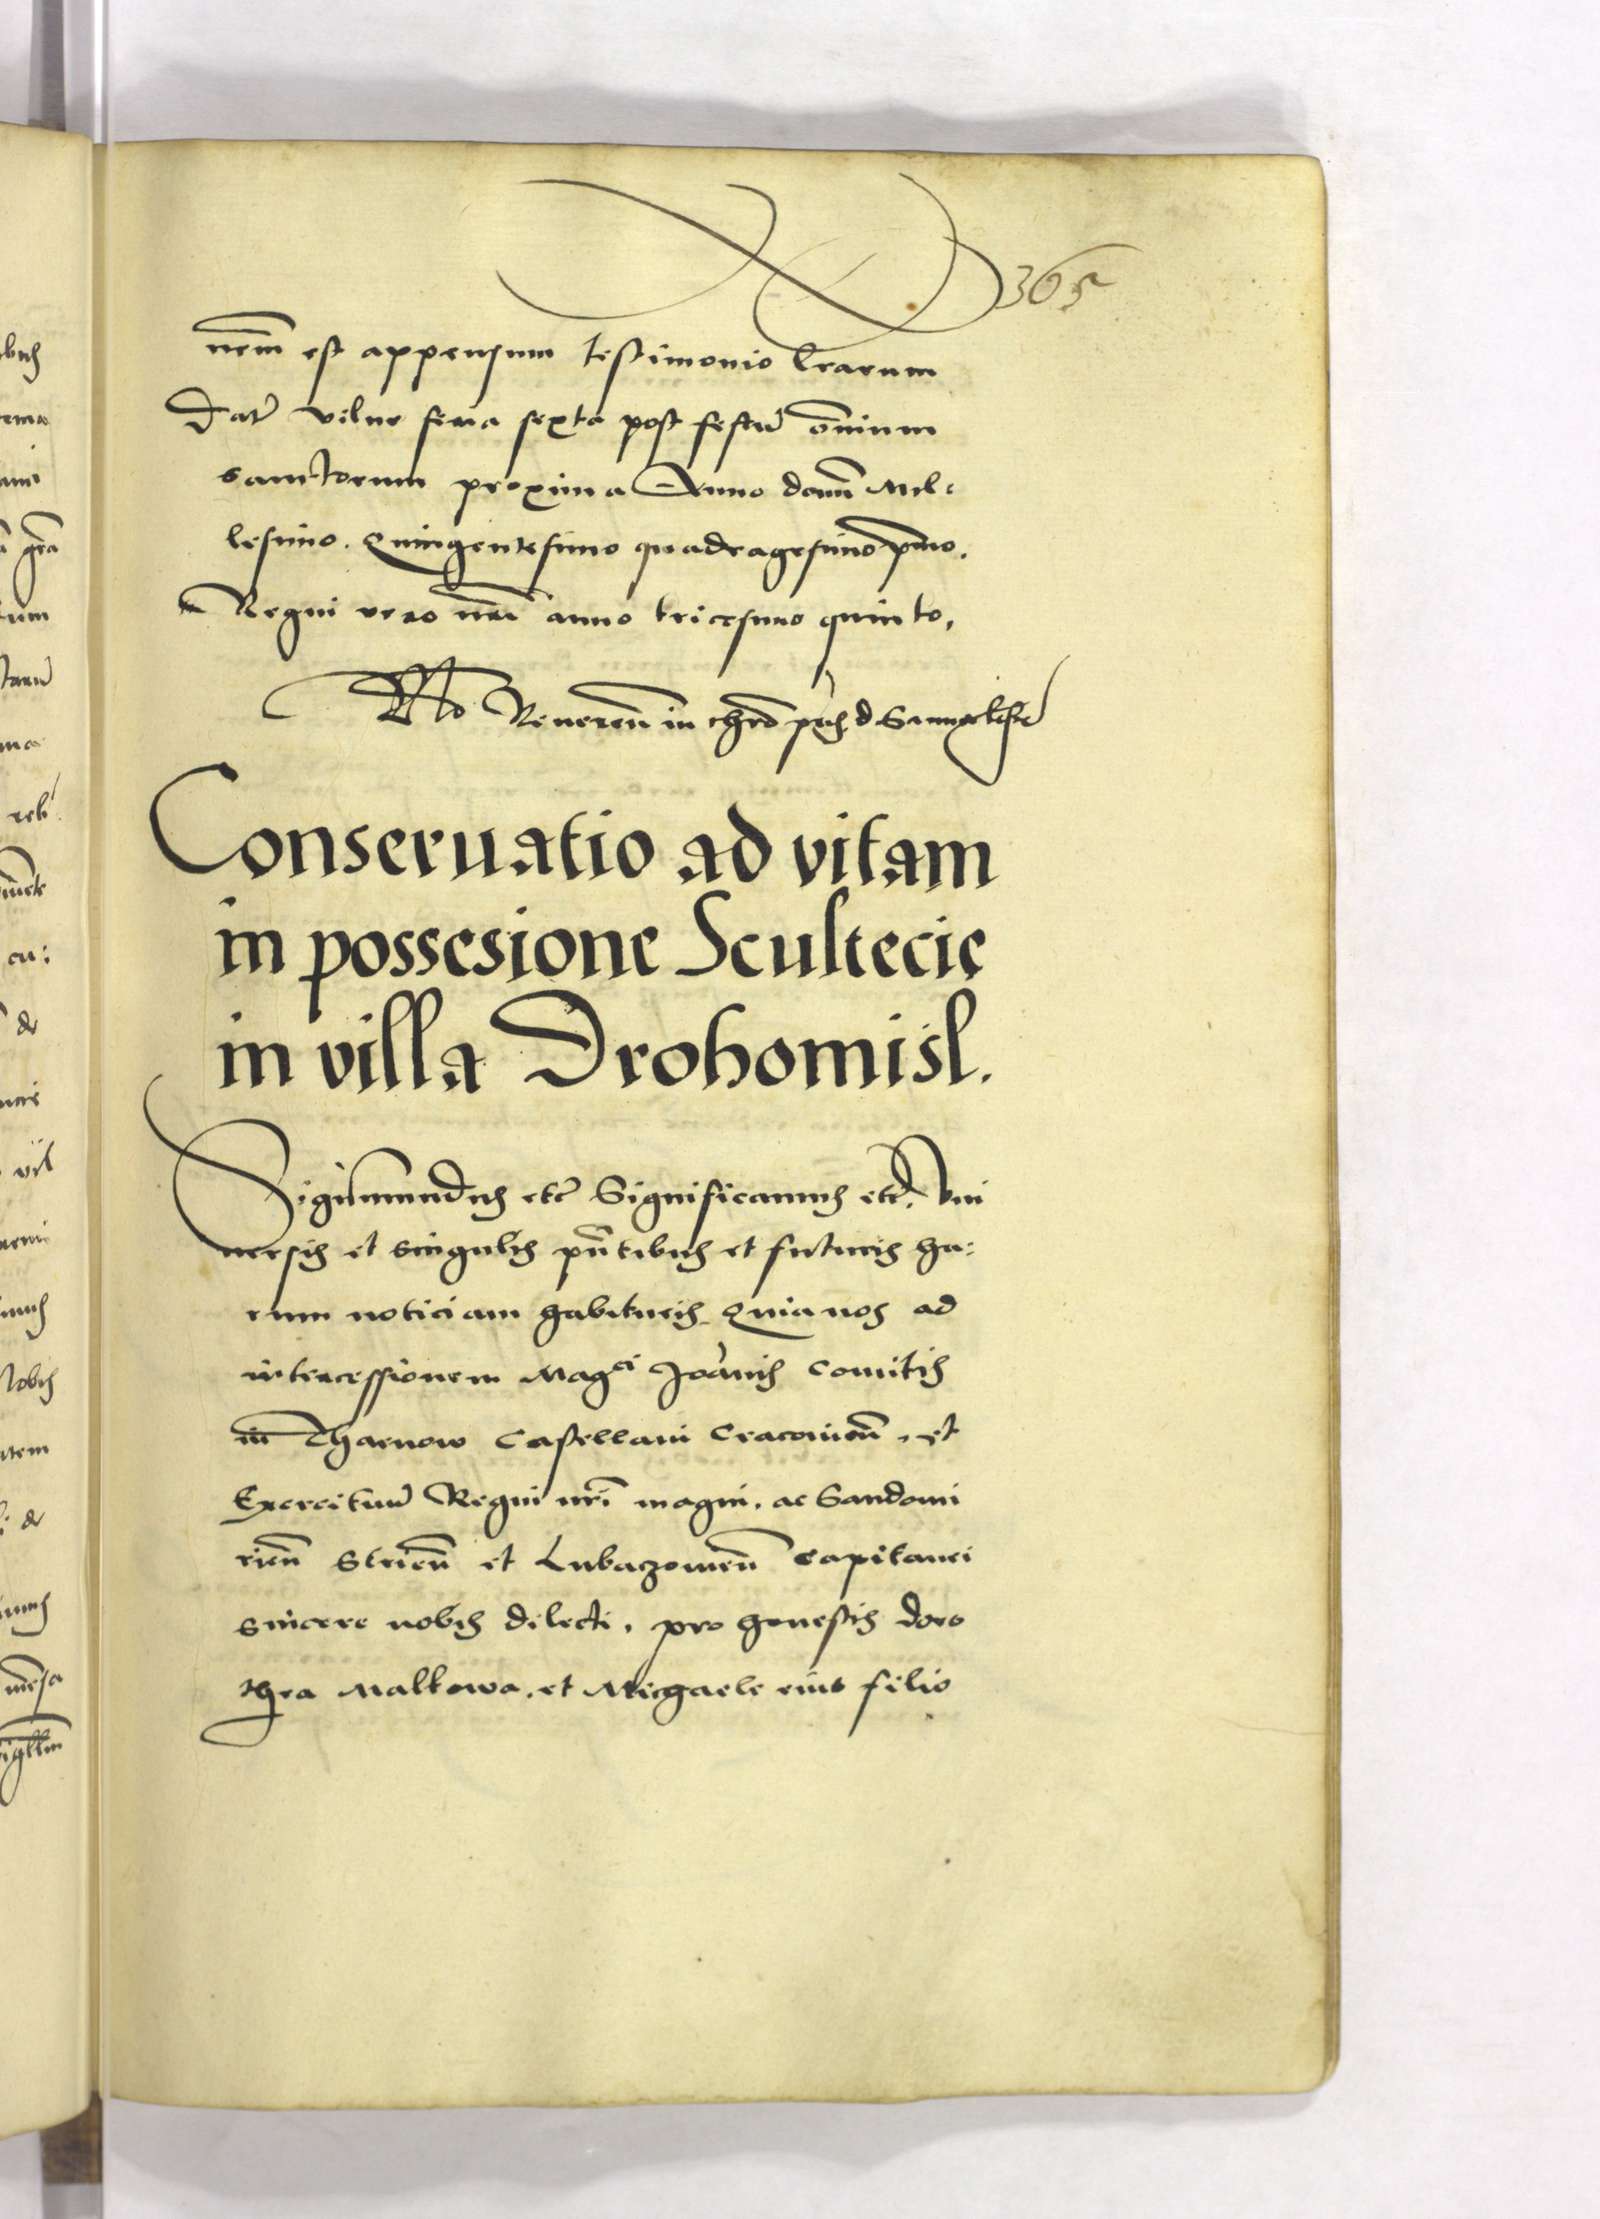 365
nrm̃ est appensum testimonio lrarum
Datˀ Vilne feria sexta post festũ om̃nium
sanctorum proxima Anno domĩ Mil⸗
lesimo. Quingentesimo quadragesimo pm̃o.
Regni vero nrĩ anno tricesimo quinto,
Reueren̄ in chrõ pr̃is d Samuelis
Conseruatio ad vitam
in possesione Scultecie
in villa Drohomisl.
Sigismundus etcˀ Significamus etcˀ. Vni
uersis et singulis pñtibus et futuris ha:
rum noticiam habituris. Quia nos ad
intercessionem Magci Joãnis Comitis
in Tharnow Castellani Cracouien̄. et
Exercituũ Regni nrĩ magni. ac Sandomi
rien̄ Strien̄ et Lubaczouien̄ Capitanei
sincere nobis dilecti. pro honestis doro
thea Malkowa. et Michaele eius filio